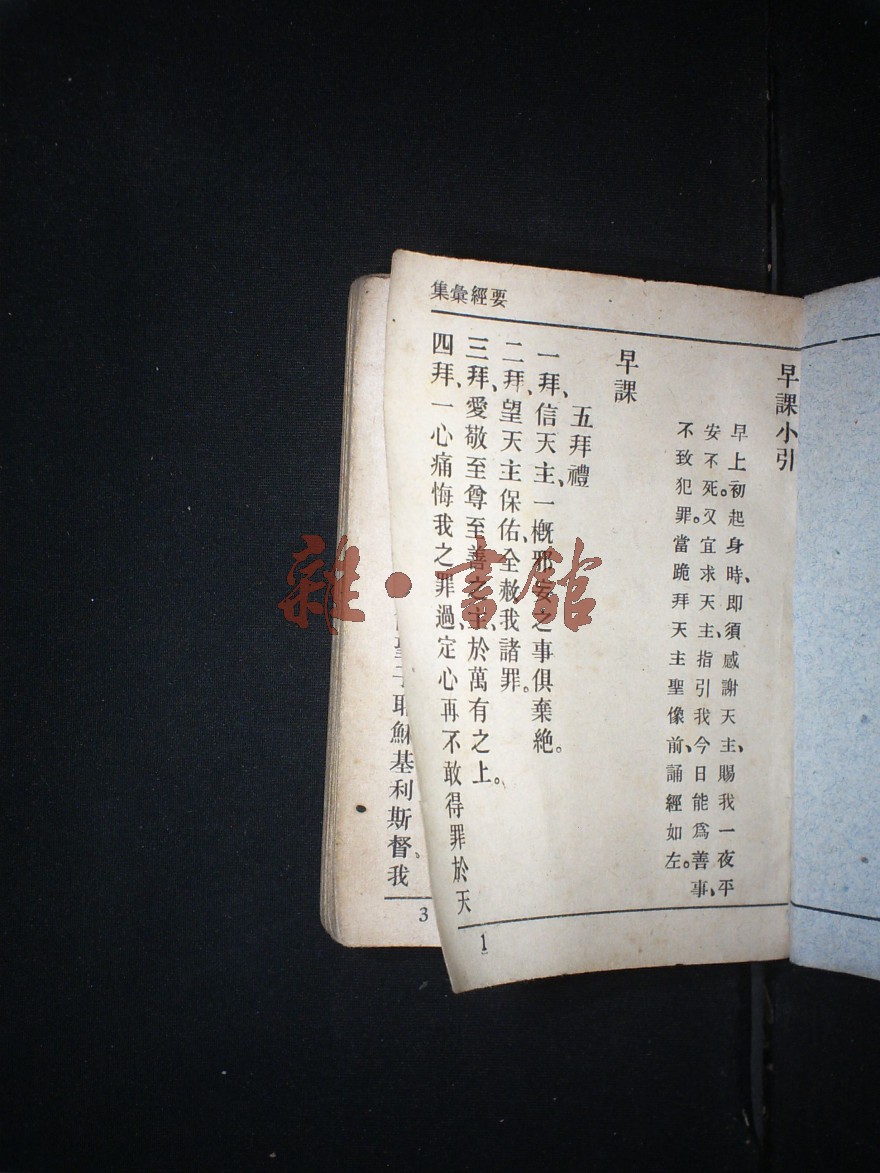 要經彙集
早課小引
早上初起身時、即須感謝天主、賜我一夜平
安不死。又宜求天主、指引我今日能爲善事、
不致犯罪。當跪拜天主聖像前、誦經如左。
早課
五拜禮
一拜、信天主、一概邪妄之事俱棄絶。
二拜、望天主保佑、全赦我諸罪。
三拜、愛敬至尊至善之主、於萬有之上。
四拜、一心痛悔我之罪過、定心再不敢得罪於天
1
子耶穌基利斯督、我
3
雜·書館